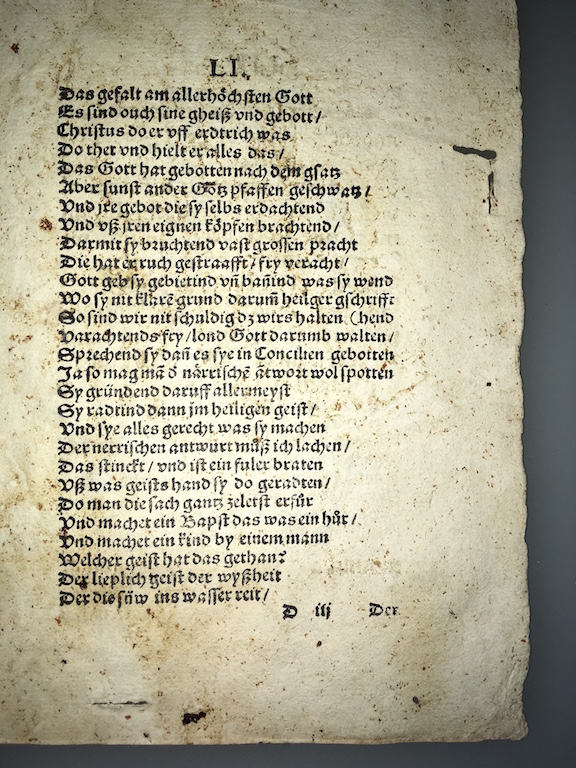 LI.
Das gefalt am allerhöchsten Gott
Es sind ouch sine gheiß vnd gebott /
Christus do er vff erdtrich was
Do thet vnd hielt er alles das /
Das Gott hat gebotten nach dem gsatz
Aber sunst ander Götz pfaffen geschwatz /
Vnd jre gebot die sy selbs erdachtend
Vnd vß jren eignen köpfen brachtend /
Darmit sy bruchtend vast grossen pracht
Die hat er ruch gestraafft / fry veracht /
Gott geb sy gebietind vn̄ bañind was sy wend
Wo sy nit klarē grund darum̄ heilger gschrifft
So sind wir nit schuldig dz wirs halten (hend
Varachtends fry / lond Gott darumb walten /
Sprechend sy dañ es sye in Concilien gebotten
Ja so mag mā d närrischē ātwort wol spotten
Sy gründend daruff allermeyst
Sy radtind dann jm heiligen geist /
Vnd sye alles gerecht was sy machen
Der nerrischen antwurt můß ich lachen /
Das stinckt / vnd ist ein fuler braten
Vß was geists hand sy do geradten /
Do man die sach gantz zeletst erfůr
Vnd machet ein Bapst das was ein hůr /
Vnd machet ein kind by einem mann
Welcher geist hat das gethan?
Der lieplich geist der wyßheit
Der die süw ins wasser reit /
D iij Der